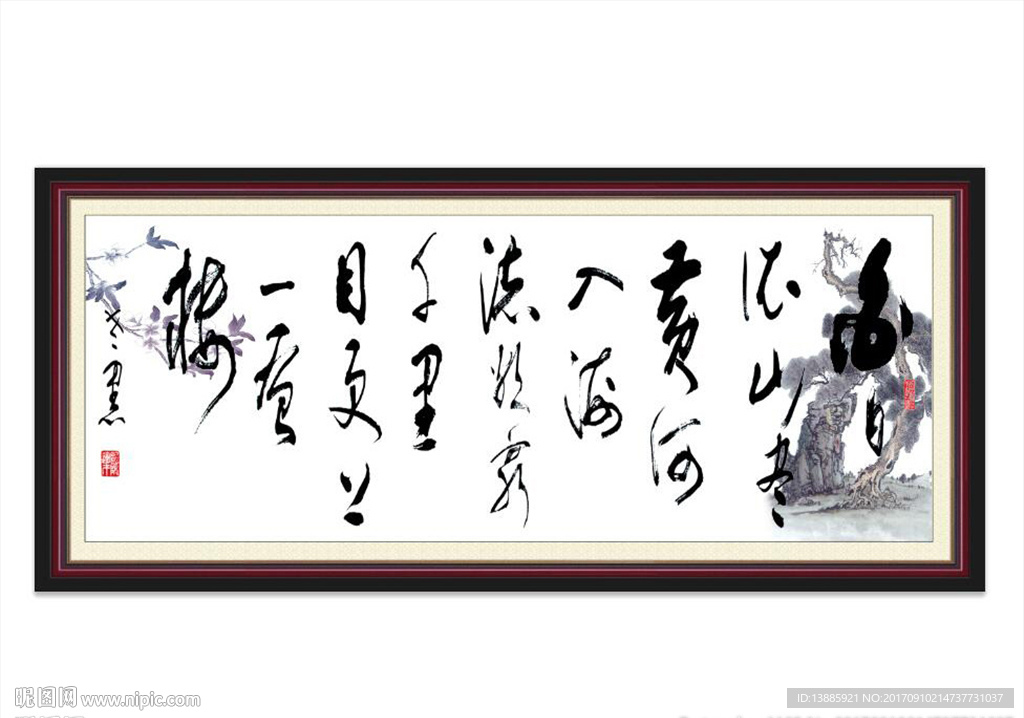 白日
依山尽
黄河
入海
流欲穷
千里
目更上
一层
楼
昵图网 www.nipic.com
ID:13885921 NO:20170910214737731037